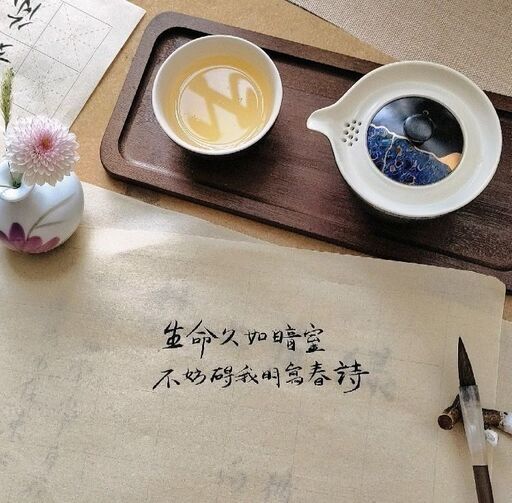 生命久如暗室
不妨碍我明写春詩